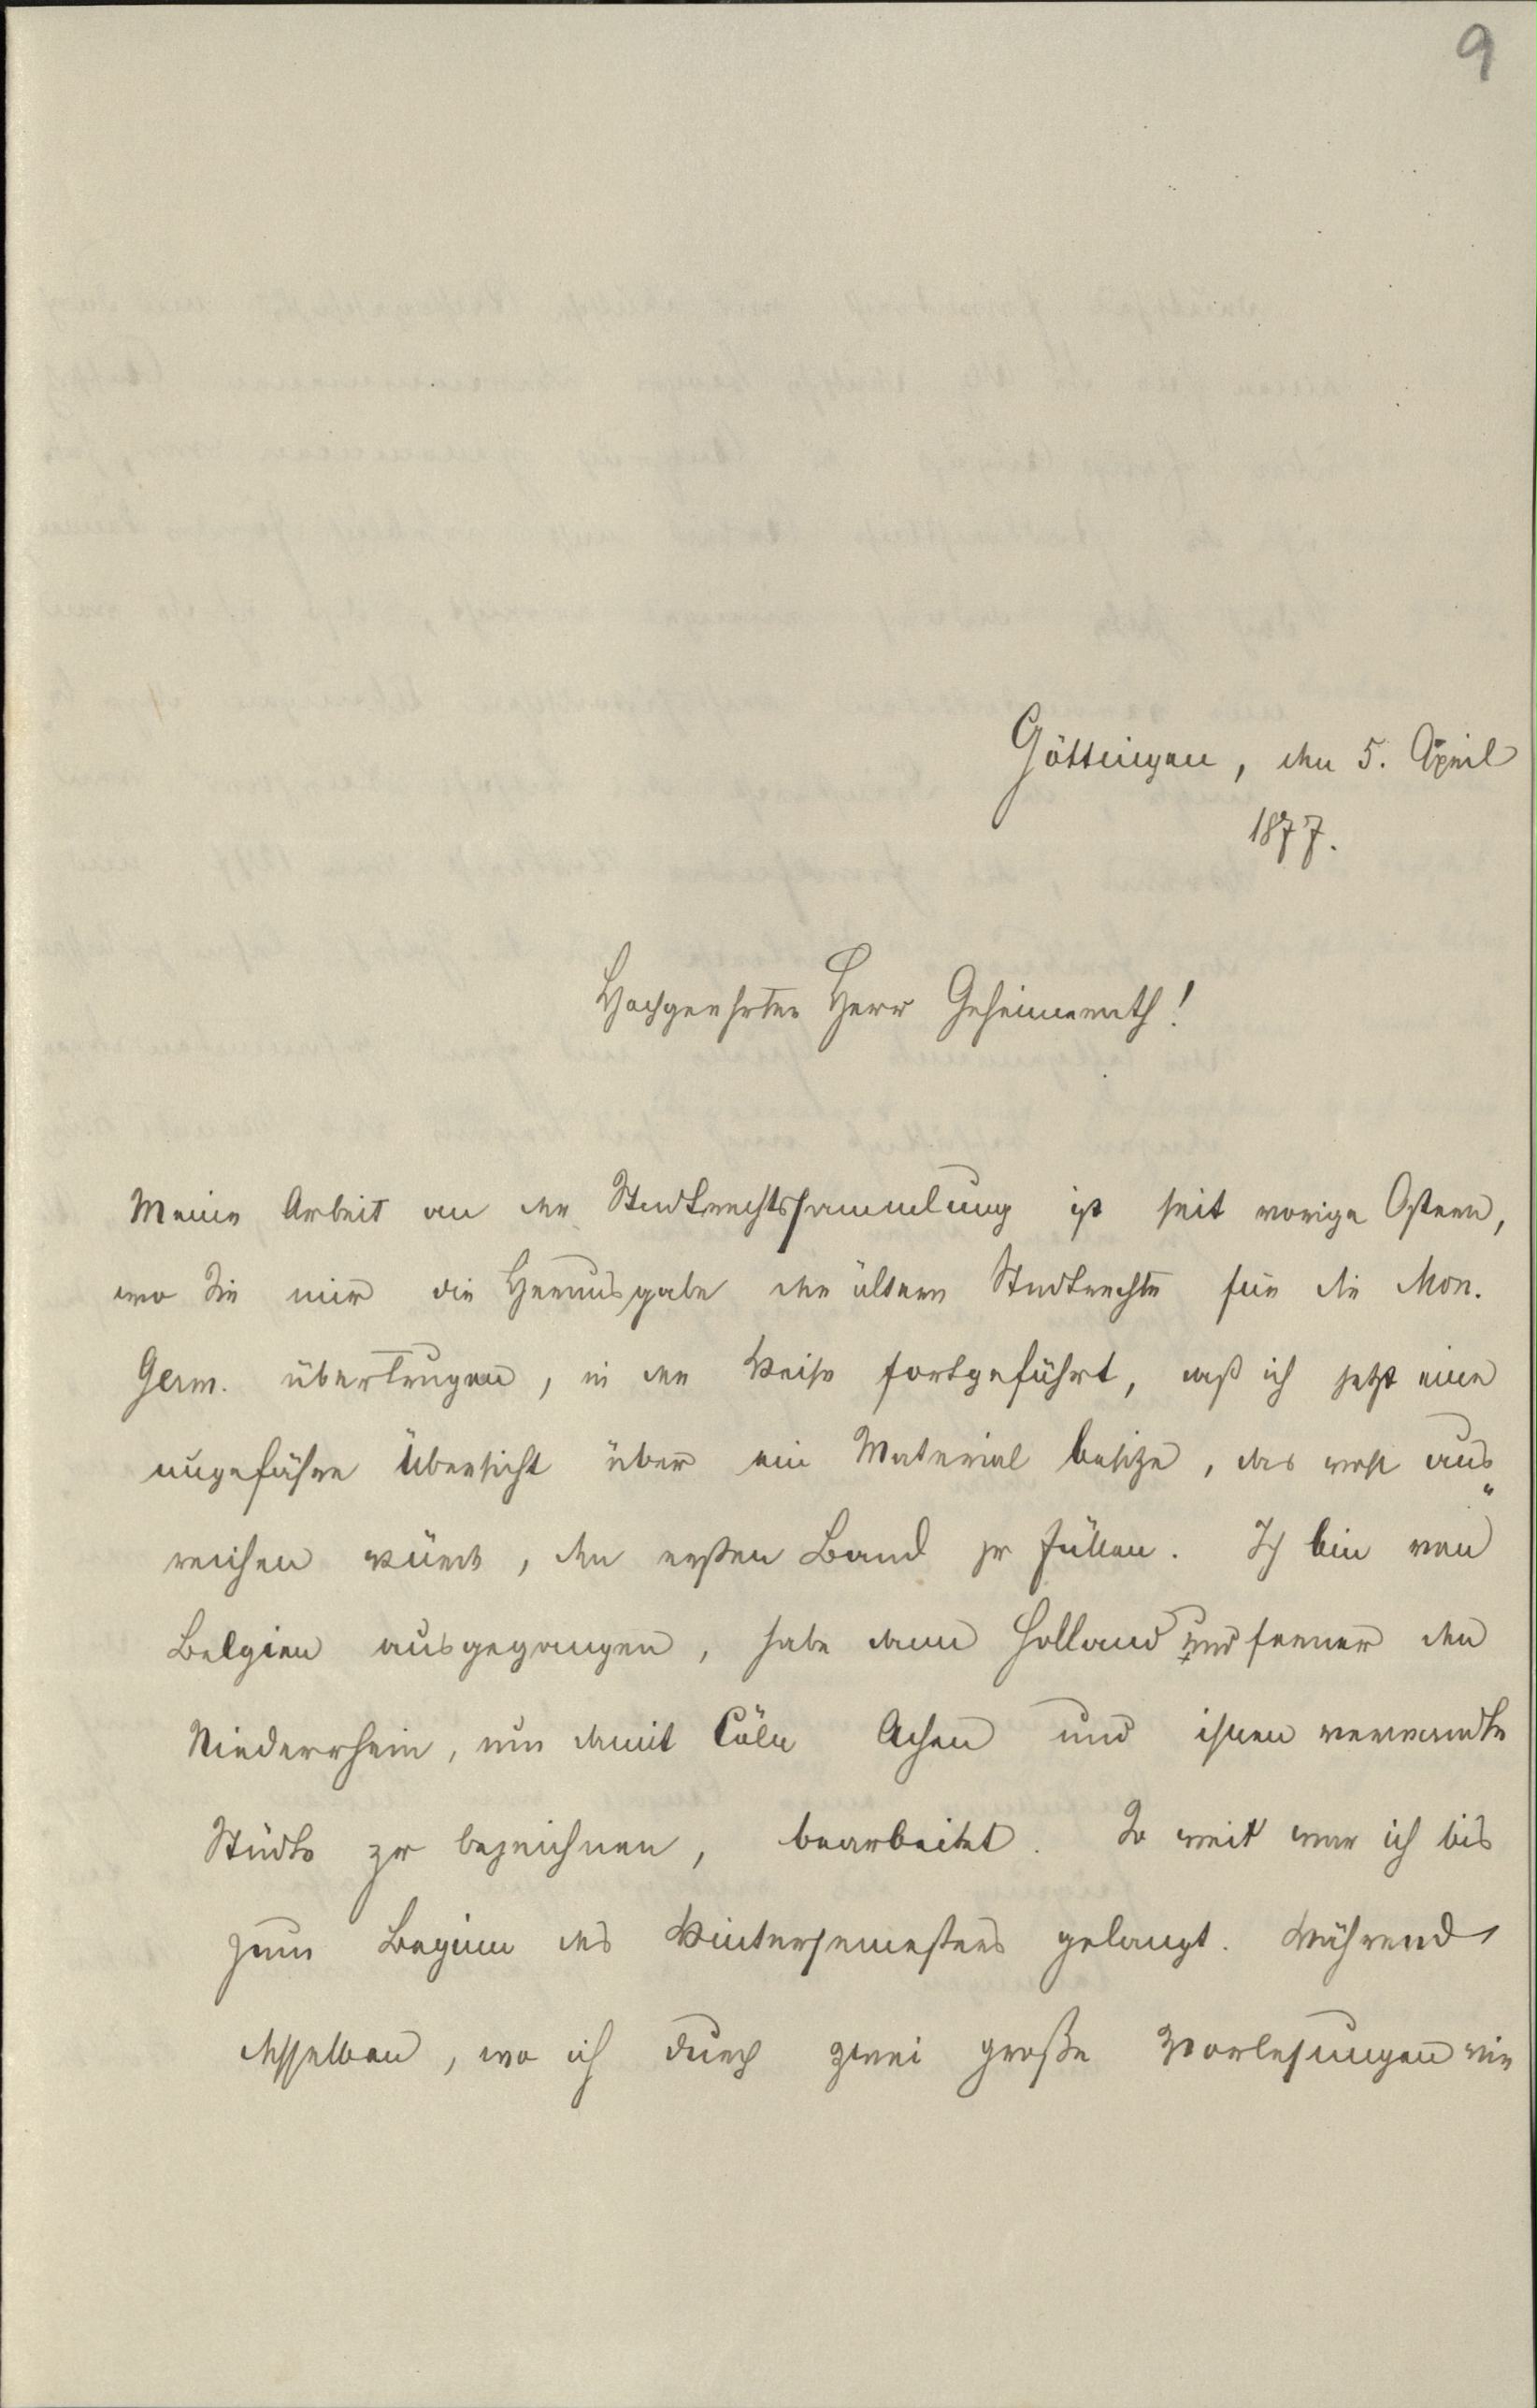 9
Göttingen, den 5. April
1877.
Hochgeehrter Herr Geheimerath!
Meine Arbeit an der Stadtrechtssammlung ist seit vorige Ostern,
wo Sie mir die Herausgabe der ältern Stadtrechte für die Mon.
Germ. übertrugen, in der Weise fortgeführt, daß ich jetzt eine
ungefähre Übersicht über ein Material besitze, das wohl aus
reichen würde, den ersten Band zu füllen. Ich bin von
Belgien ausgegangen, habe dann Holland und ferner den
Niederrhein, um damit Cöln Achen und ihnen verwandte
Städte zu bezeichnen, bearbeitet. So weit war ich bis
zum Beginn des Wintersemesters gelangt. Während
desselben, wo ich durch zwei große Vorlesungen wie